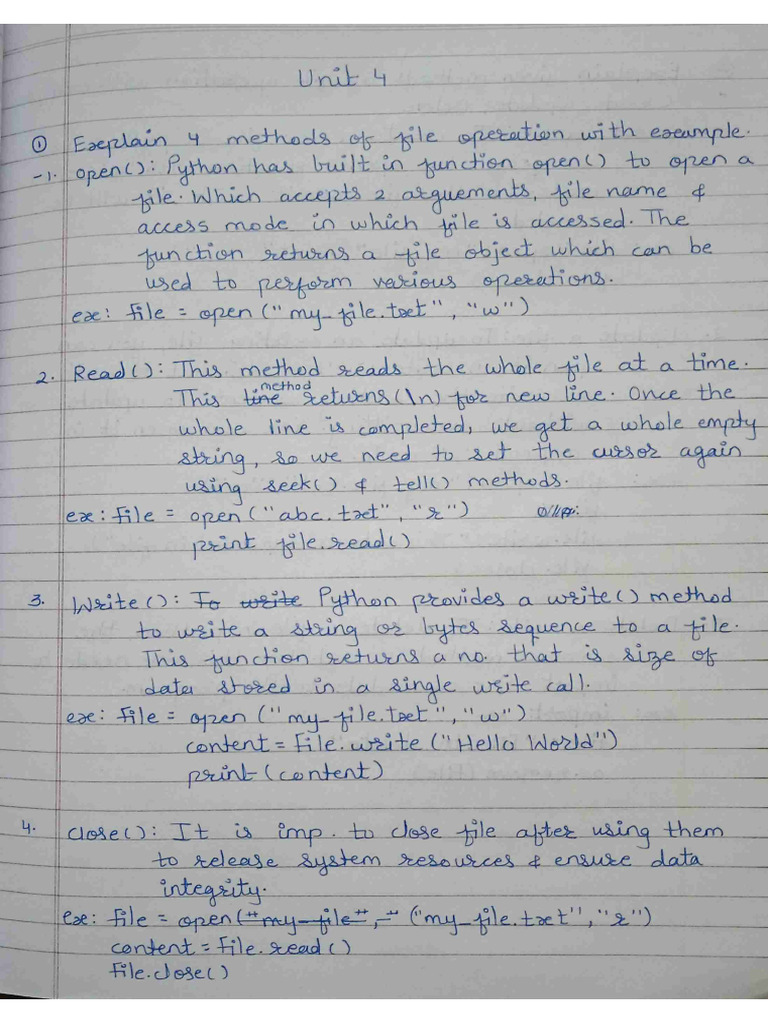 Unit 4
① Explain 4 methods of file operation with example.
-1. open(): Python has built in function open() to open a
file. Which accepts 2 arguements, file name &
access mode in which file is accessed. The
function returns a file object which can be
used to perform various operations.
ex: file = open ("my_file.txt", "w")
2. Read(): This method reads the whole file at a time.
This line method returns (\n) for new line. Once the
whole line is completed, we get a whole empty
string, so we need to set the cursor again
using seek() & tell() methods.
ex: file = open ("abc.txt", "r")
print file.read()
3. Write(): To write Python provides a write() method
to write a string or bytes sequence to a file.
This function returns a no. that is size of
data stored in a single write call.
ex: file = open ("my_file.txt", "w")
content = file.write ("Hello World")
print (content)
4. close(): It is imp. to close file after using them
to release system resources & ensure data
integrity.
ex: file = open("my_file", " ("my_file.txt", "r")
content = file.read()
file.close()